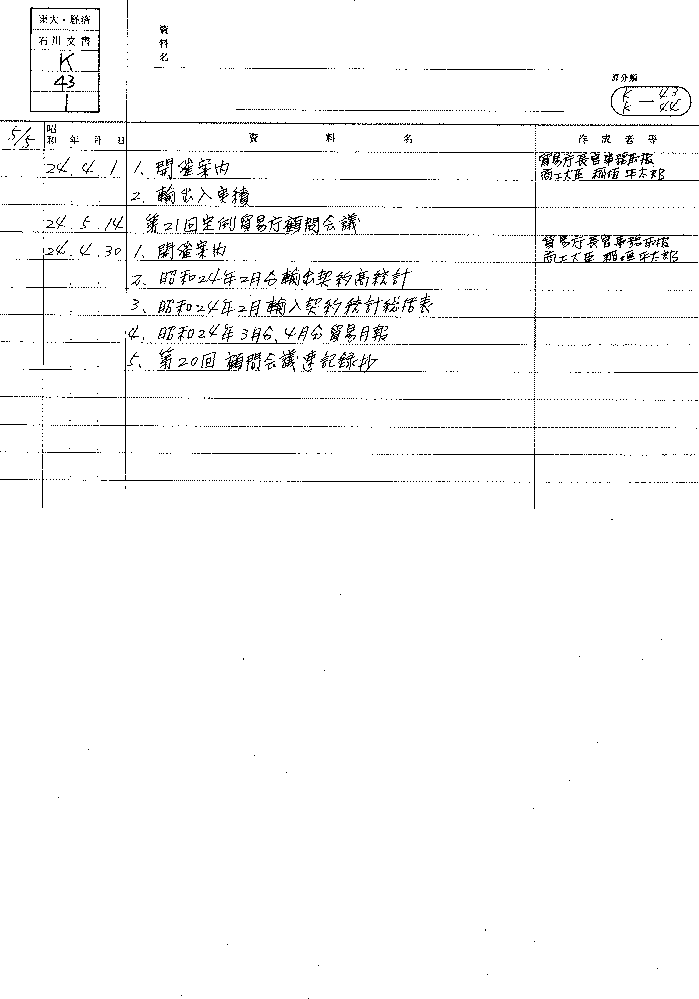 東大・経済
石川文書
K
43
1
資料名
原分類
K — 43
K — 44
5/5 昭和 年 月 日 資料名 作成者等
24. 4. 1 1. 開催案内 貿易庁長官事務取扱
商工大臣 稲垣平太郎
2. 輸出入実績
24. 5. 14 第21回定例貿易庁顧問会議
24. 4. 30 1. 開催案内 貿易庁長官事務取扱
商工大臣 稲垣平太郎
2. 昭和24年2月分輸出契約高統計
3. 昭和24年2月輸入契約統計総括表
4. 昭和24年3月分、4月分貿易月報
5. 第20回 顧問会議速記録抄